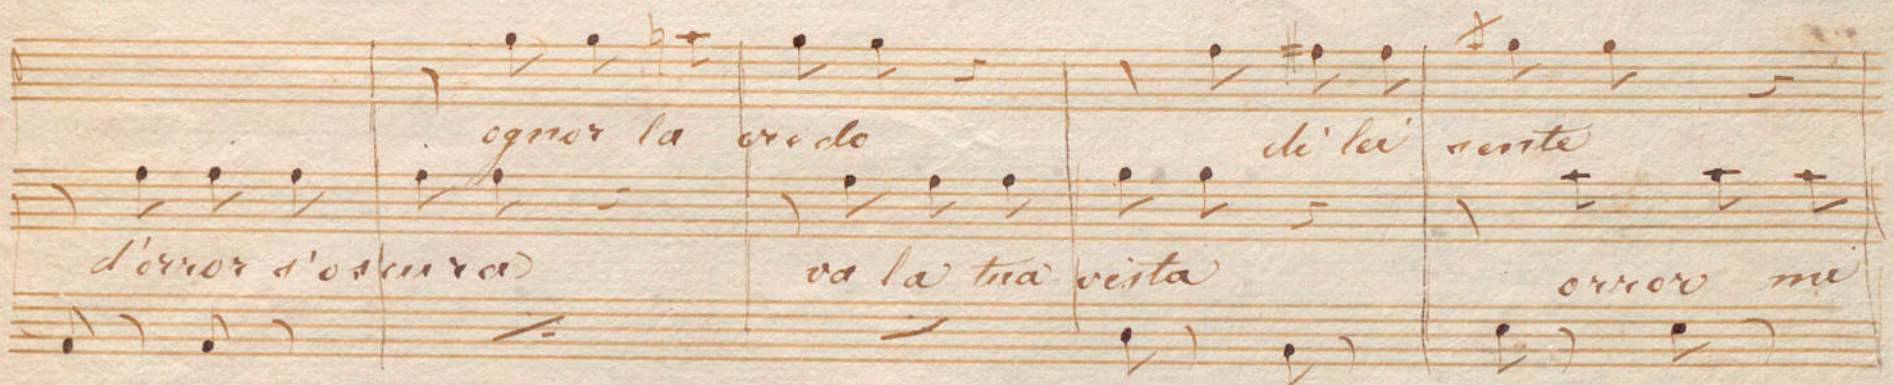 ognor la credo di lei sente
d'orror s'oscura va la tua vista orror mi